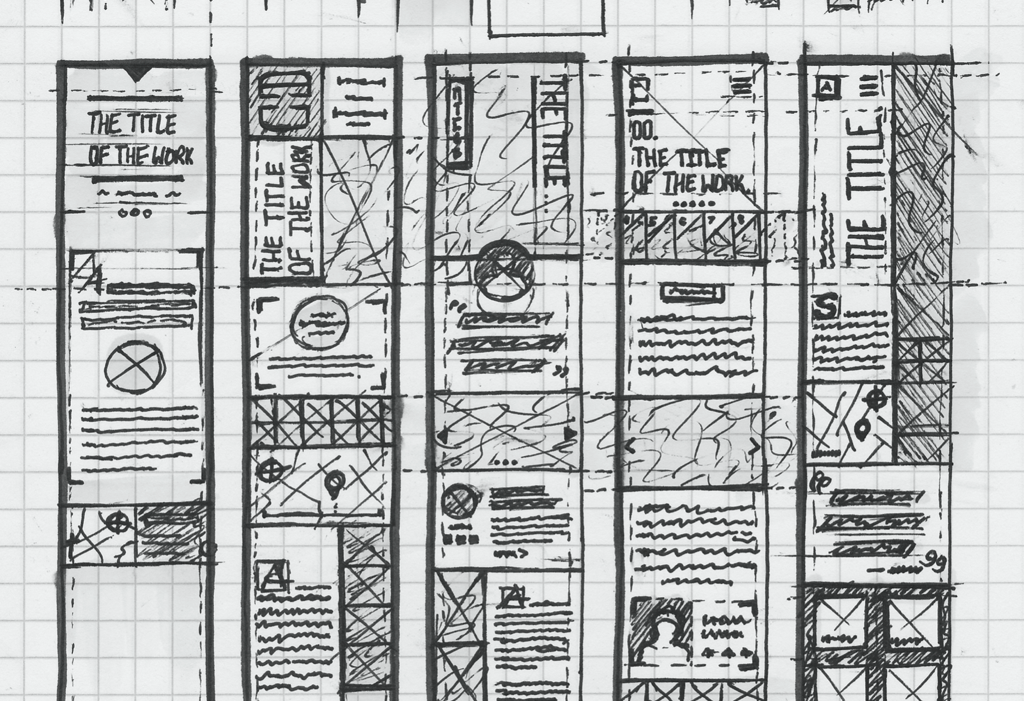 THE TITLE
OF THE WORK
A
THE TITLE
OF THE WORK
A
THE TITLE...
A
00.
THE TITLE
OF THE WORK
5
6
7
8
A
THE TITLE
S